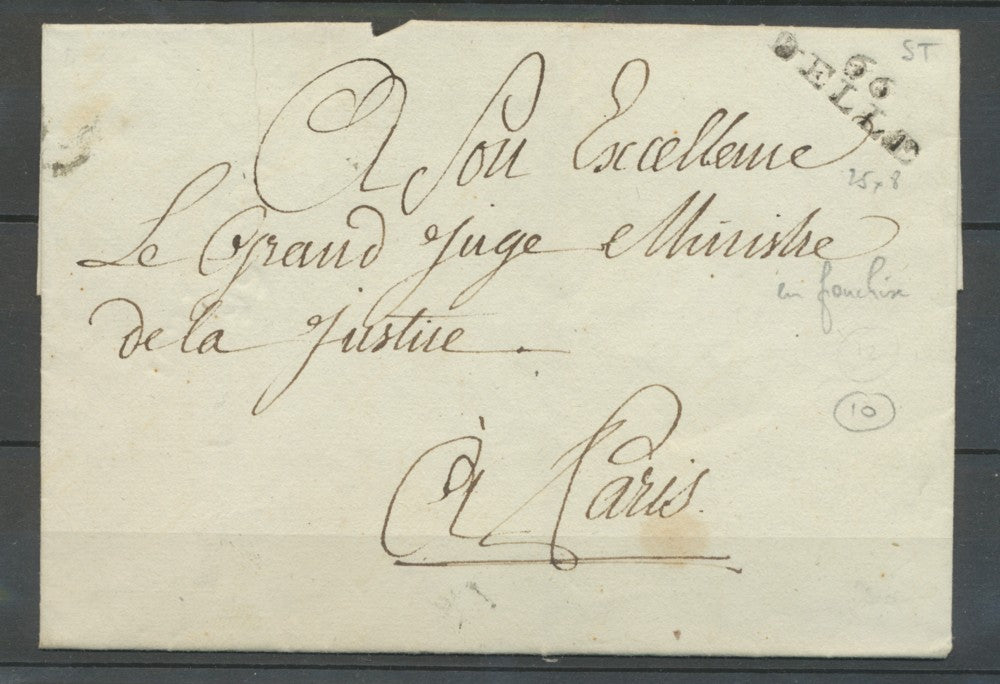 ST
66
DELLE
25x8
A Son Excellence
Le Grand Juge Ministre
de la Justice.
en franchise
10
à Paris.